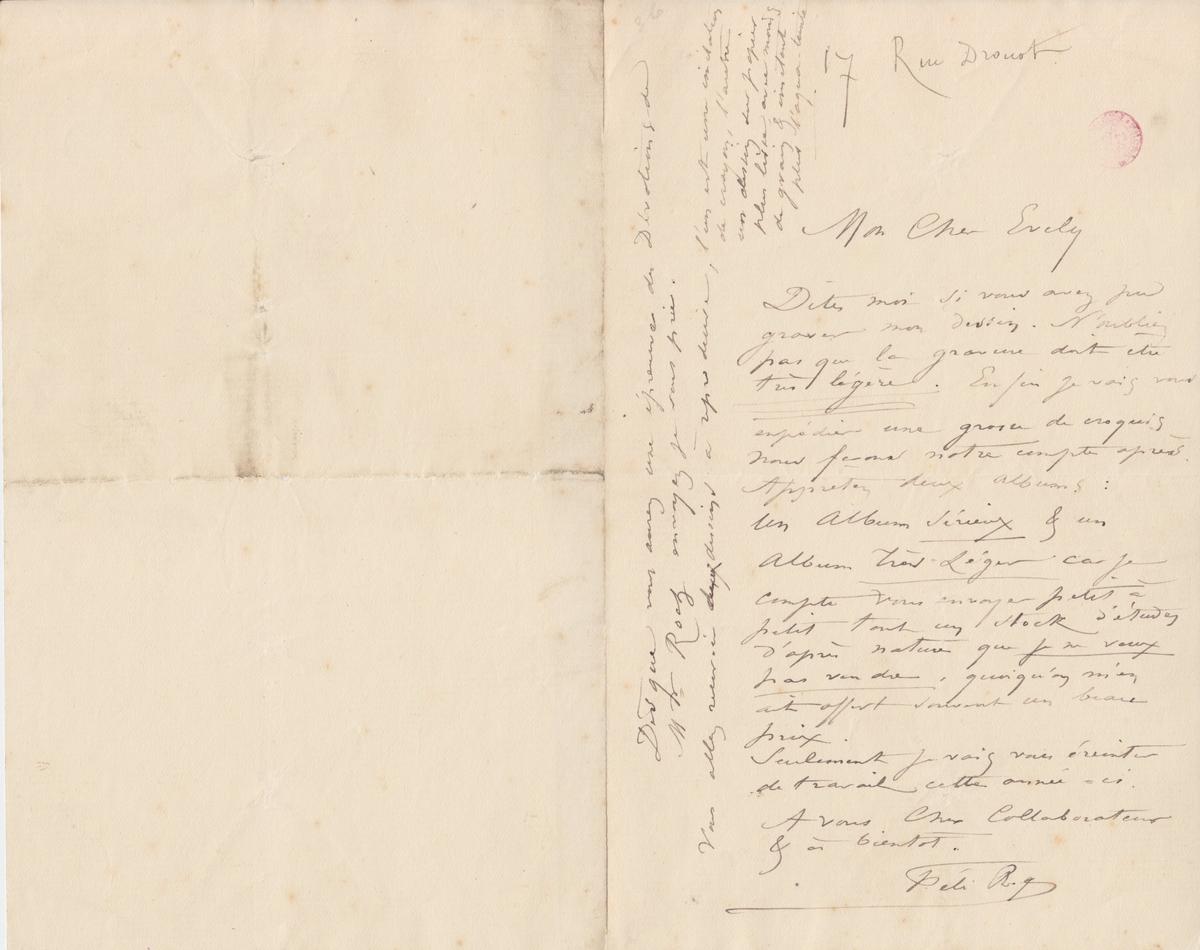 7 Rue Drouot.
Mon Cher Evely
Dites moi si vous avez pu
graver mon dessin. N'oubliez
pas que la gravure doit être
très légère. Enfin je vais vous
expédier une grosse de croquis
nous ferons notre compte après.
Apprêtez deux albums :
un Album Sérieux & un
Album Très Léger car je
compte vous envoyer petit à
petit tout un stock d'études
d'après nature que je ne veux
pas vendre, quoiqu'on m'en
ait offert souvent un beau
prix.
Seulement je vais vous éreinter
de travail cette année-ci.
A vous Cher Collaborateur
& à bientôt.
Féli R.
Dès que vous aurez une épreuve des Dévotions de
Mr Rodz envoyez je vous prie.
Vous allez recevoir deux dessins à reproduire, l'un est une imitation
de crayon, l'autre
un dessin sur papier
plus lisse avec moins
de grain & imitant
plus l'aqua-tinte